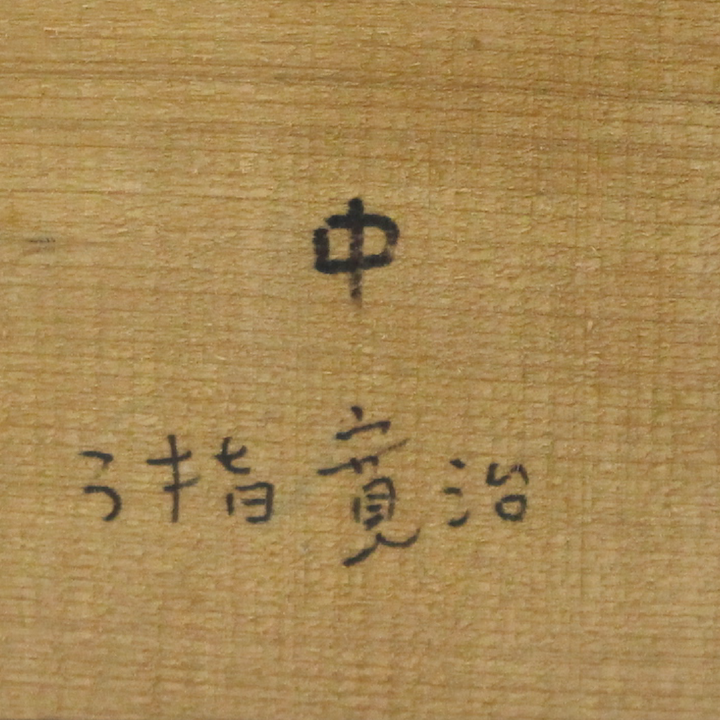 中
弓指寛治